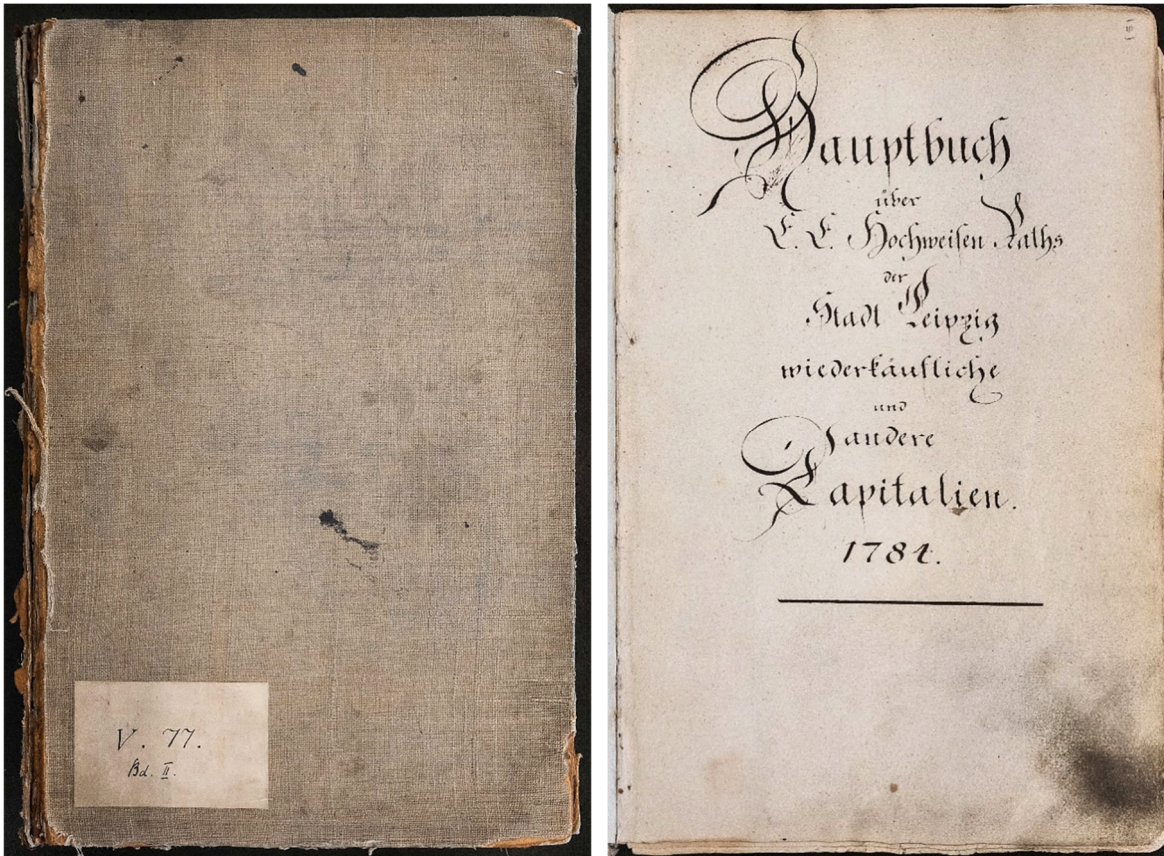 V. 77.
Bd. II.
Hauptbuch
über
E. E. Hochweisen Raths
der
Stadt Leipzig
wiederkäufliche
und
andere
Kapitalien.
1784.